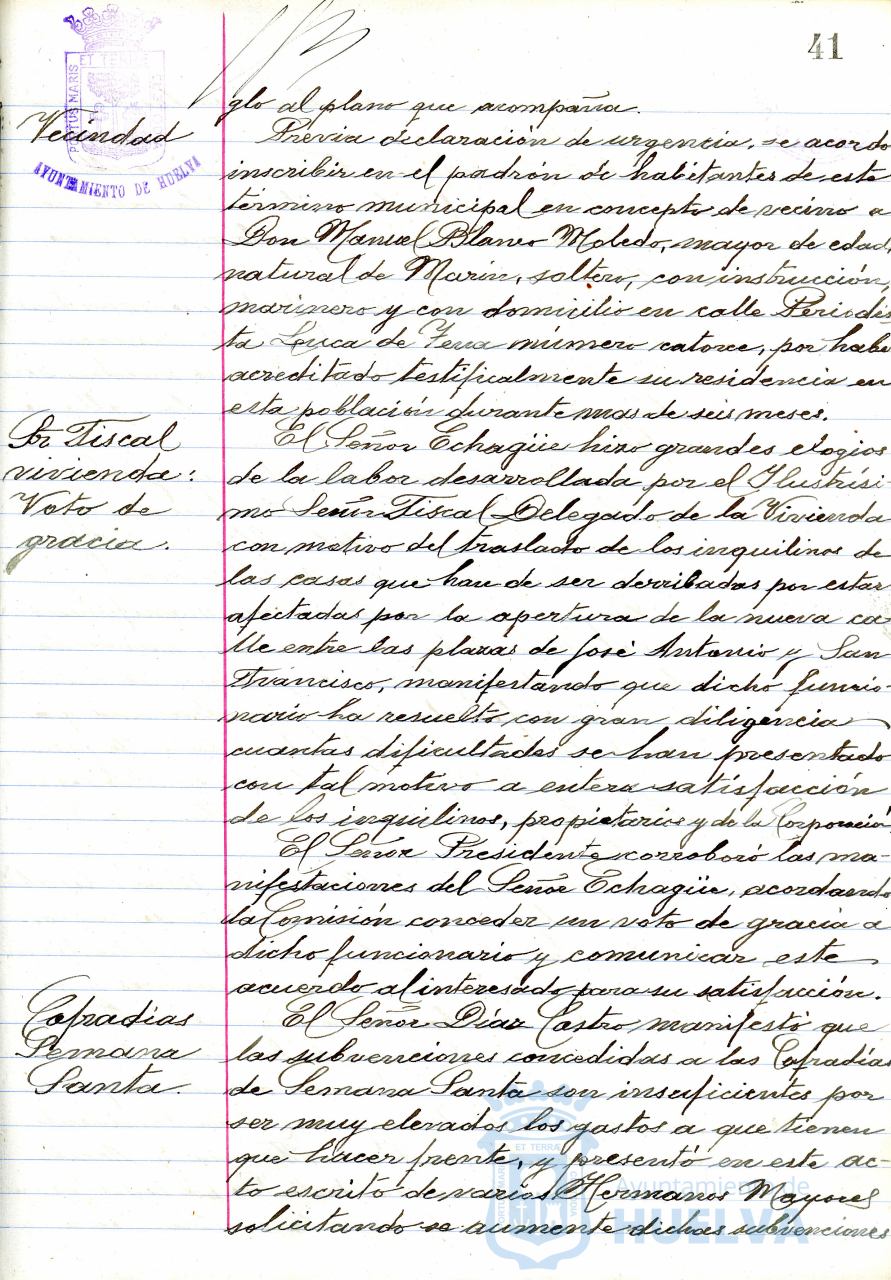 41
PORTUS MARIS ET TERRAE CUSTODIA
AYUNTAMIENTO DE HUELVA
glo al plano que acompaña.
Vecindad
Previa declaración de urgencia, se acordó
inscribir en el padrón de habitantes de este
término municipal en concepto de vecino a
Don Manuel Blanco Moledo, mayor de edad,
natural de Marín, soltero, con instrucción,
marinero y con domicilio en calle Periodis
ta Luca de Tena número catorce, por habe
acreditado testificalmente su residencia en
esta población durante mas de seis meses.
Sr Fiscal
vivienda:
Voto de
gracia.
El Señor Echagüe hizo grandes elogios
de la labor desarrollada por el Ilustrísi-
mo Señor Fiscal Delegado de la Vivienda
con motivo del traslado de los inquilinos de
las casas que han de ser derribadas por estar
afectadas por la apertura de la nueva ca-
lle entre las plazas de José Antonio y San
Francisco, manifestando que dicho funcio-
nario ha resuelto con gran diligencia
cuantas dificultades se han presentado
con tal motivo a entera satisfacción
de los inquilinos, propietarios y de la Corporación
El Señor Presidente corroboró las ma-
nifestaciones del Señor Echagüe, acordando
la Comisión conceder un voto de gracia a
dicho funcionario y comunicar este
acuerdo al interesado para su satisfacción.
Cofradías
Semana
Santa.
El Señor Díaz Castro manifestó que
las subvenciones concedidas a las Cofradías
de Semana Santa son insuficientes por
ser muy elevados los gastos a que tienen
que hacer frente, y presentó en este ac-
to escrito de varios Hermanos Mayores
solicitando se aumente dichas subvenciones
ET TERRA
Ayuntamiento de
HUELVA